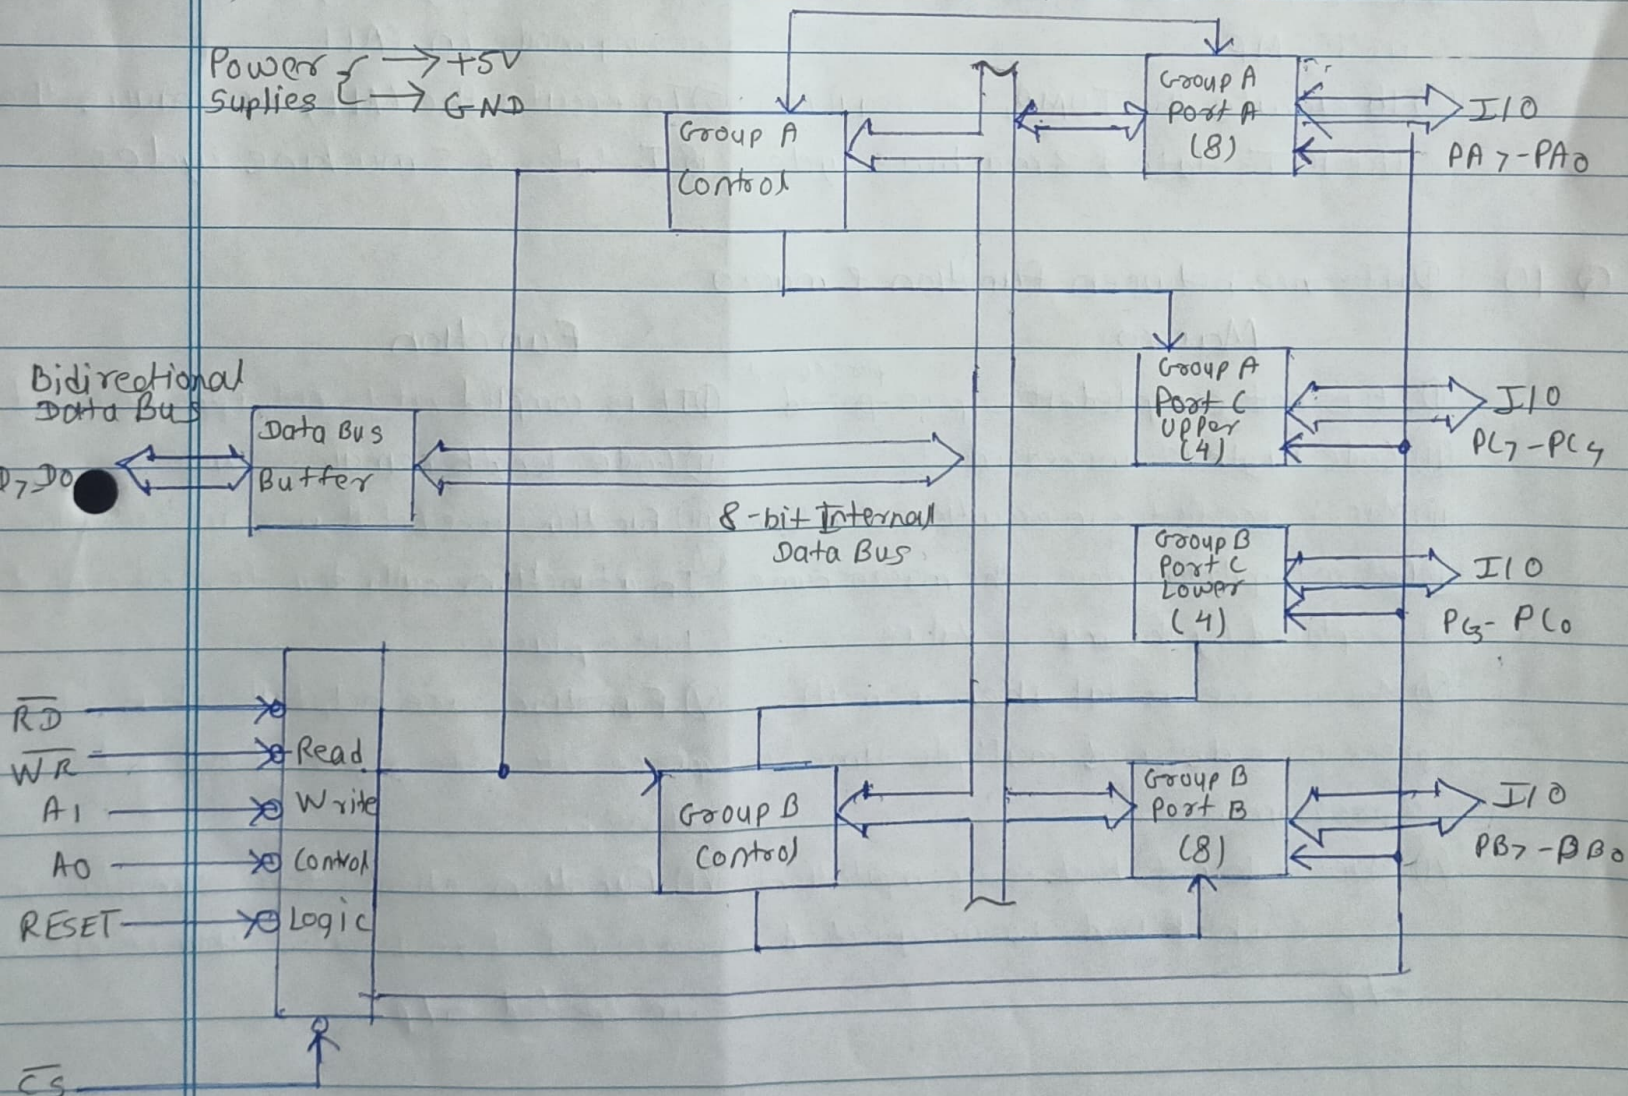 Power
Suplies
+5V
GND
Group A
Control
Group A
Port A
(8)
I/O
PA7-PA0
Bidirectional
Data Bus
D7-D0
Data Bus
Buffer
8-bit Internal
Data Bus
Group A
Port C
Upper
(4)
I/O
PC7-PC4
Group B
Port C
Lower
(4)
I/O
PC3-PC0
RD
WR
A1
A0
RESET
CS
Read
Write
Control
Logic
Group B
Control
Group B
Port B
(8)
I/O
PB7-BB0